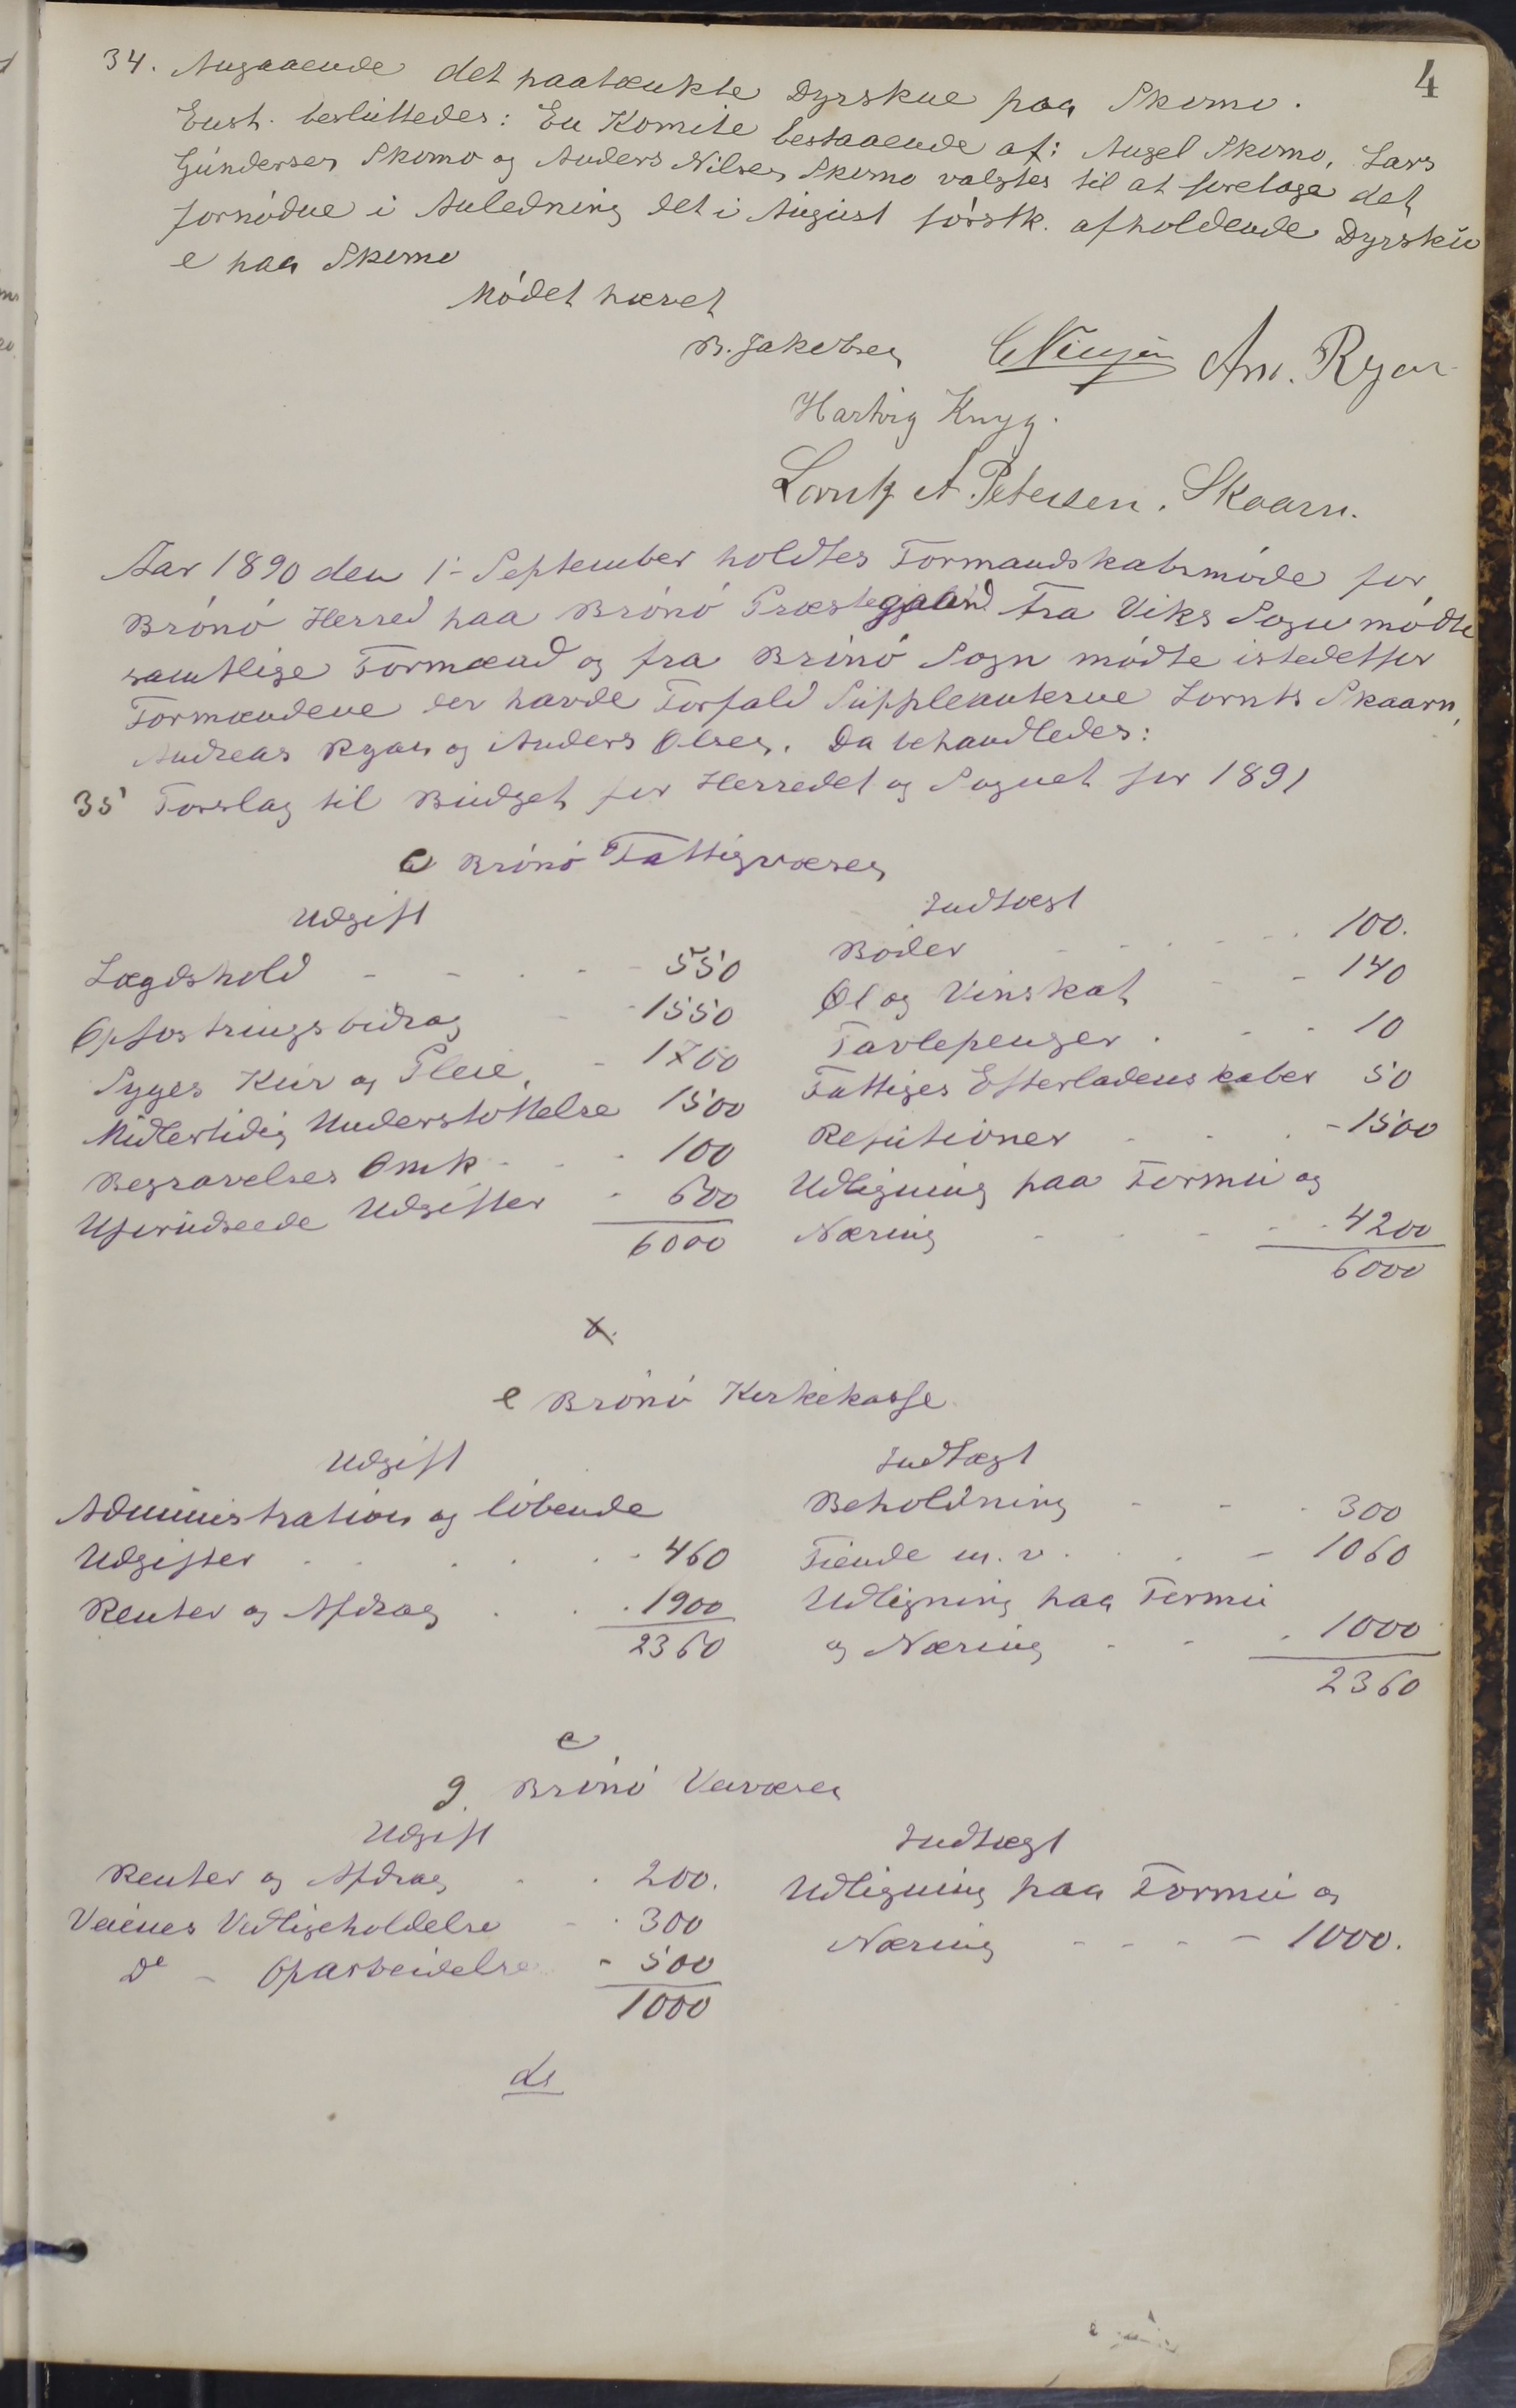 4
34. Angaaende det paatænkte Dyrskue paa Skomo.
Enst. besluttedes: En Komite bestaaende af: Angel Skomo, Lars
Gundersen Skomo og Anders Nilsen Skomo valgtes til at foretage det
fornødne i Anledning det i August førstk. afholdende Dyrsku
e paa Skomo
Mødet hævet
B. Jakobsen Am. Ryan
Hartvig Kryg.
Lorntz A. Petersen. Skaarn.
Aar 1890 den 1ᵗ September holdtes Formandskabsmøde for
Brønø Herred paa Brønø Præstegaard. Fra Viks Sogn mødte
samtlige Formænd og fra Brønø Sogn mødte istedetfor
Formændene der havde Forfald Suppleanterne Lornts Skaarn,
Andreas Ryan og Anders Olsen. Da behandledes:
35 Forslag til Budget for Herredet og Sognet for 1891
a Brønø Fattigvæsen
Udgift Indtægt
Lægdshold - - - - 550 Bøder - - - - 100.
Opfostringsbidrag - - 1550 Øl og Vinskat - - 140
Syges Kur og Pleie. - 1700 Tavlepenger . - - 10
Midlertidig Understøttelse 1500 Fattiges Efterladenskaber 50
Begravelses Omk - - - 100 Refutioner - - - 1500
Uforudseede Udgifter - 600 Udligning paa Formu og
6000 Næring - - - - 4200
6000
e Brønø Kirkekasse.
Udgift Indtægt
Administration og løbende Beholdning - - - 300
Udgifter . . . . . 460 Tiende m. v. . . - 1060
Renter og Afdrag . . . 1900 Udligning paa Formu
2360 og Næring - - - 1000
2360
e
g. Brønø Veivæsen
Udgift Indtægt
Renter og Afdrag - - 200. Udligning paa Formu og
Veienes Vedligeholdelse - - 300 Næring - - - - 1000.
Dᵒ - Oparbeidelse - 500
1000
ds